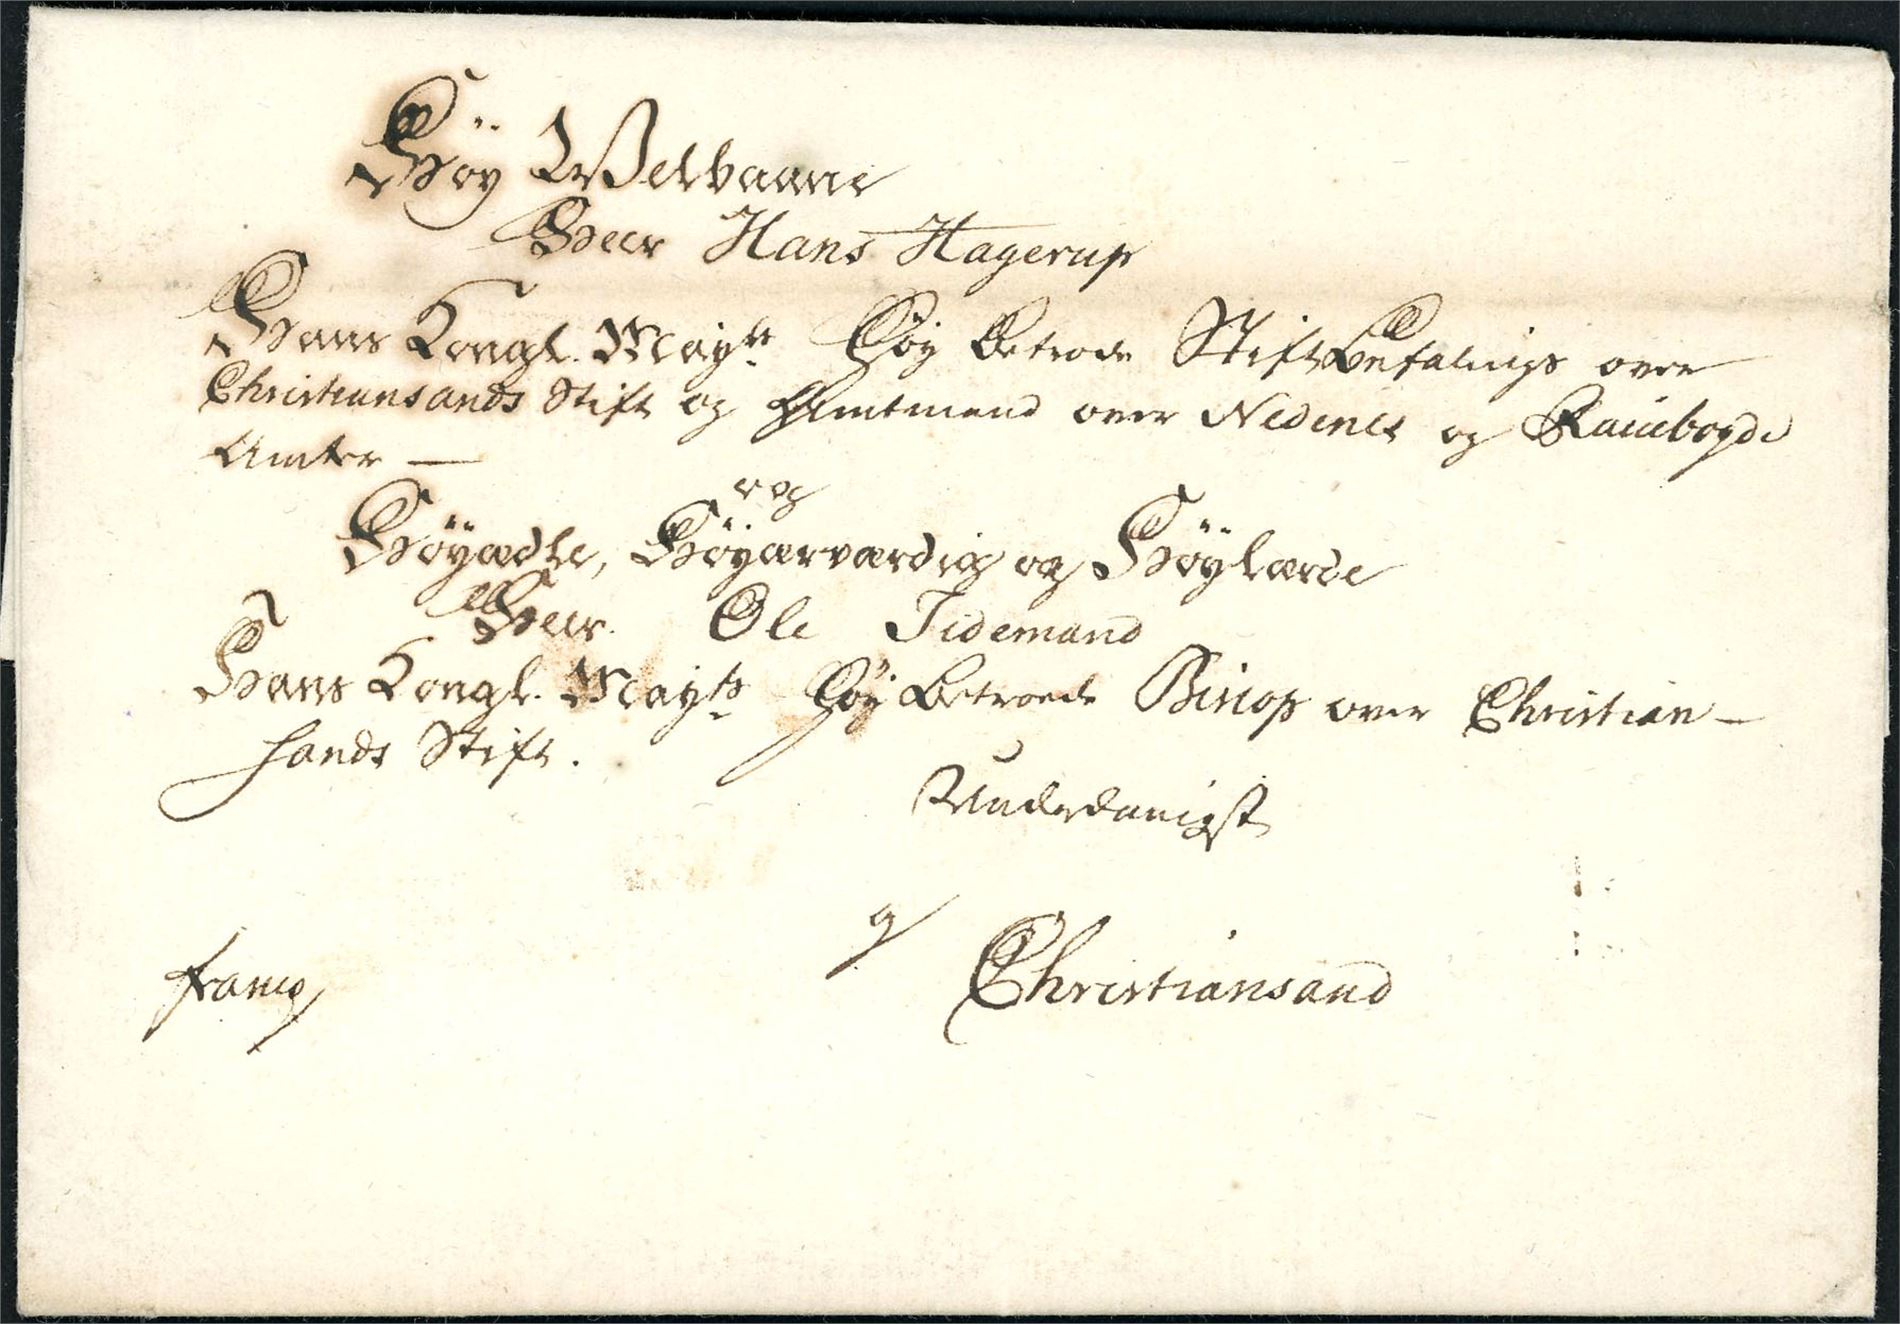 Høy Welbaarne
Herr Hans Hagerup
Hans Kongl. Mayts Høy Betrode Stiftbefalings over
Christiansands Stift og Amtmand over Nedenes og Raaebøyde
Amter —
og
Høyædle, Høyærværdig og Høylærde
Herr. Ole Tidemand
Hans Kongl. Mayts Høy Betroede Bisop over Christian-
sands Stift.
Underdanigst
Christiansand
franco